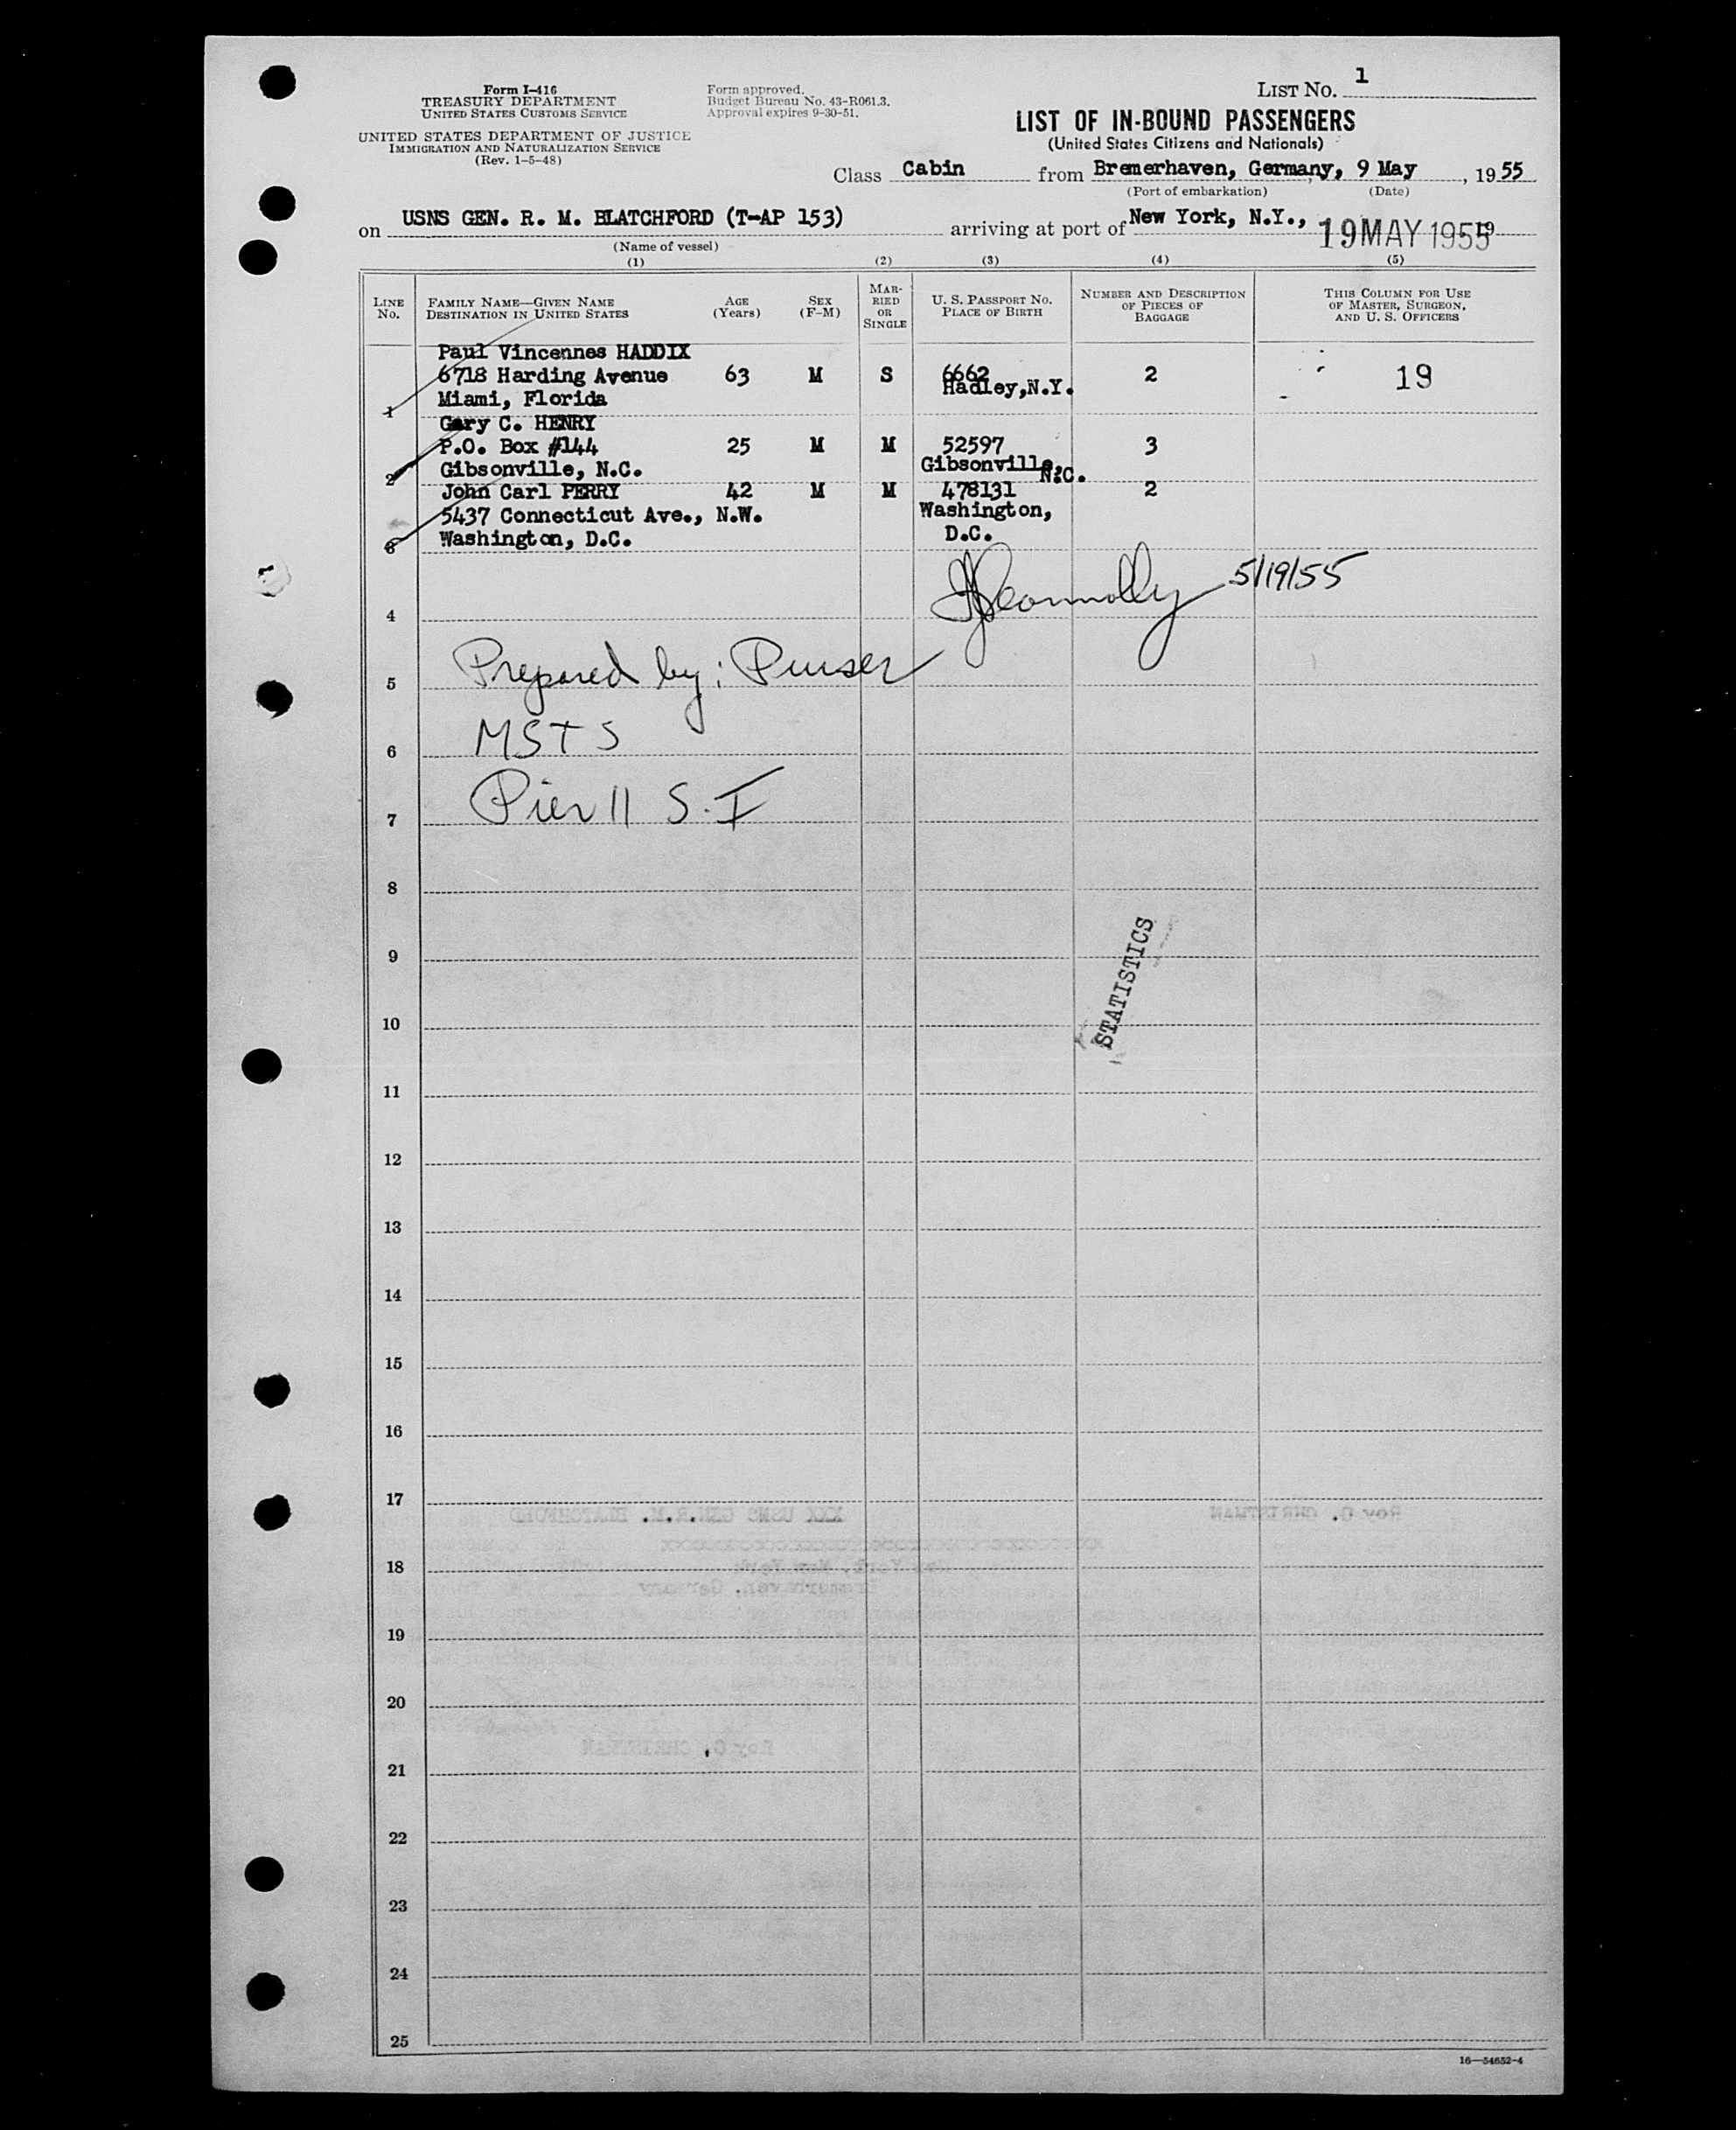 Form I-416
TREASURY DEPARTMENT
UNITED STATES CUSTOMS SERVICE
UNITED STATES DEPARTMENT OF JUSTICE
IMMIGRATION AND NATURALIZATION SERVICE
(Rev. 1-5-48)
Form approved.
Budget Bureau No. 43-R061.3.
Approval expires 9-30-51.
LIST No. 1
LIST OF IN-BOUND PASSENGERS
(United States Citizens and Nationals)
Class Cabin from Bremerhaven, Germany, 9 May, 1955
(Port of embarkation) (Date)
on USNS GEN. R. M. BLATCHFORD (T-AP 153) arriving at port of New York, N.Y., 19 MAY 1955 19
(Name of vessel)
(1) (2) (3) (4) (5)
LINE No. FAMILY NAME—GIVEN NAME DESTINATION IN UNITED STATES AGE (Years) SEX (F-M) MARRIED OR SINGLE U. S. PASSPORT No. PLACE OF BIRTH NUMBER AND DESCRIPTION OF PIECES OF BAGGAGE THIS COLUMN FOR USE OF MASTER, SURGEON, AND U. S. OFFICERS
Paul Vincennes HADDIX
6718 Harding Avenue 63 M S 6662 Hadley, N.Y. 2 19
1 Miami, Florida
Gary C. HENRY
P.O. Box #144 25 M M 52597 3
2 Gibsonville, N.C. Gibsonville, N.C.
John Carl PERRY 42 M M 478131 2
5437 Connecticut Ave., N.W. Washington,
3 Washington, D.C. D.C.
Connolly 5/19/55
4
5 Prepared by: Purser
6 MSTS
7 Pier 11 S.I
8
9
STATISTICS
10
11
12
13
14
15
16
17
18
19
20
21
22
23
24
25
16—54652-4